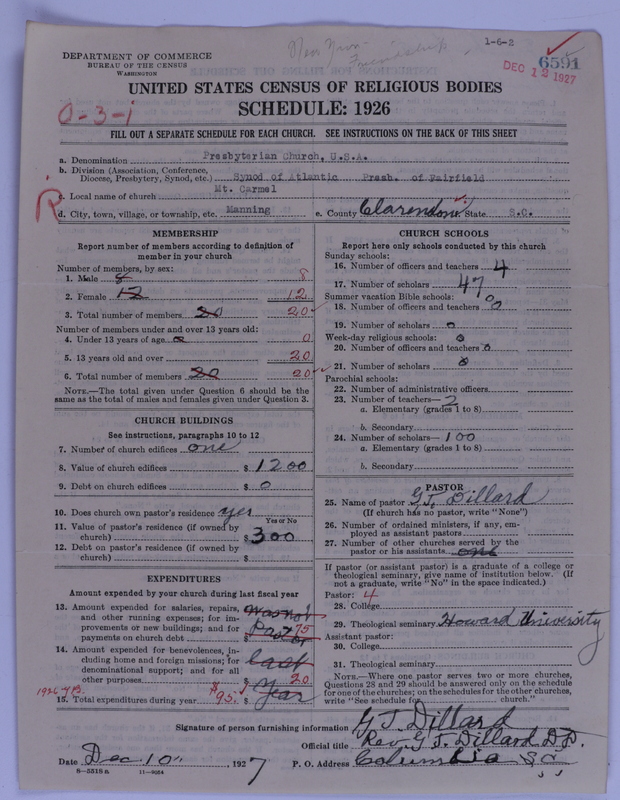 1-6-2
DEPARTMENT OF COMMERCE
BUREAU OF THE CENSUS
WASHINGTON
6591
DEC 12 1927
UNITED STATES CENSUS OF RELIGIOUS BODIES
SCHEDULE: 1926
0-3-1
FILL OUT A SEPARATE SCHEDULE FOR EACH CHURCH. SEE INSTRUCTIONS ON THE BACK OF THIS SHEET
a. Denomination Presbyterian Church, U.S.A.
b. Division (Association, Conference, Diocese, Presbytery, Synod, etc.) Synod of Atlantic Presb. of Fairfield
c. Local name of church Mt. Carmel
R
d. City, town, village, or township, etc. Manning e. County Clarendon State S.C.
MEMBERSHIP
Report number of members according to definition of member in your church
Number of members, by sex:
1. Male 8 8
2. Female 12 12
3. Total number of members 20 20
Number of members under and over 13 years old:
4. Under 13 years of age 0 0
5. 13 years old and over 20
6. Total number of members 20 20
NOTE.—The total given under Question 6 should be the same as the total of males and females given under Question 3.
CHURCH BUILDINGS
See instructions, paragraphs 10 to 12
7. Number of church edifices one
8. Value of church edifices $ 1200
9. Debt on church edifices $ 0
10. Does church own pastor's residence yes
Yes or No
11. Value of pastor's residence (if owned by church) $ 300
12. Debt on pastor's residence (if owned by church) $
EXPENDITURES
Amount expended by your church during last fiscal year
13. Amount expended for salaries, repairs, and other running expenses; for improvements or new buildings; and for payments on church debt $ was not Pastor 75
14. Amount expended for benevolences, including home and foreign missions; for denominational support; and for all other purposes $ last 20
15. Total expenditures during year $95. $ Year
CHURCH SCHOOLS
Report here only schools conducted by this church
Sunday schools:
16. Number of officers and teachers 4
17. Number of scholars 47
Summer vacation Bible schools: 0
18. Number of officers and teachers 0
19. Number of scholars 0
Week-day religious schools: 0
20. Number of officers and teachers 0
21. Number of scholars 0
Parochial schools:
22. Number of administrative officers
23. Number of teachers— 2
a. Elementary (grades 1 to 8)
b. Secondary
24. Number of scholars— 100
a. Elementary (grades 1 to 8)
b. Secondary
PASTOR
25. Name of pastor G.T. Dillard
(If church has no pastor, write "None")
26. Number of ordained ministers, if any, employed as assistant pastors
27. Number of other churches served by the pastor or his assistants one
If pastor (or assistant pastor) is a graduate of a college or theological seminary, give name of institution below. (If not a graduate, write "No" in the space indicated.)
Pastor: 4
28. College
29. Theological seminary Howard University
Assistant pastor:
30. College
31. Theological seminary
NOTE.—Where one pastor serves two or more churches, Questions 28 and 29 should be answered only on the schedule for one of the churches; on the schedules for the other churches, write "See schedule for church."
Signature of person furnishing information G T Dillard
Official title Rev. G. T. Dillard D.D.
Date Dec 10, 1927 P. O. Address Columbia S.C.
8-5518a 11-9064